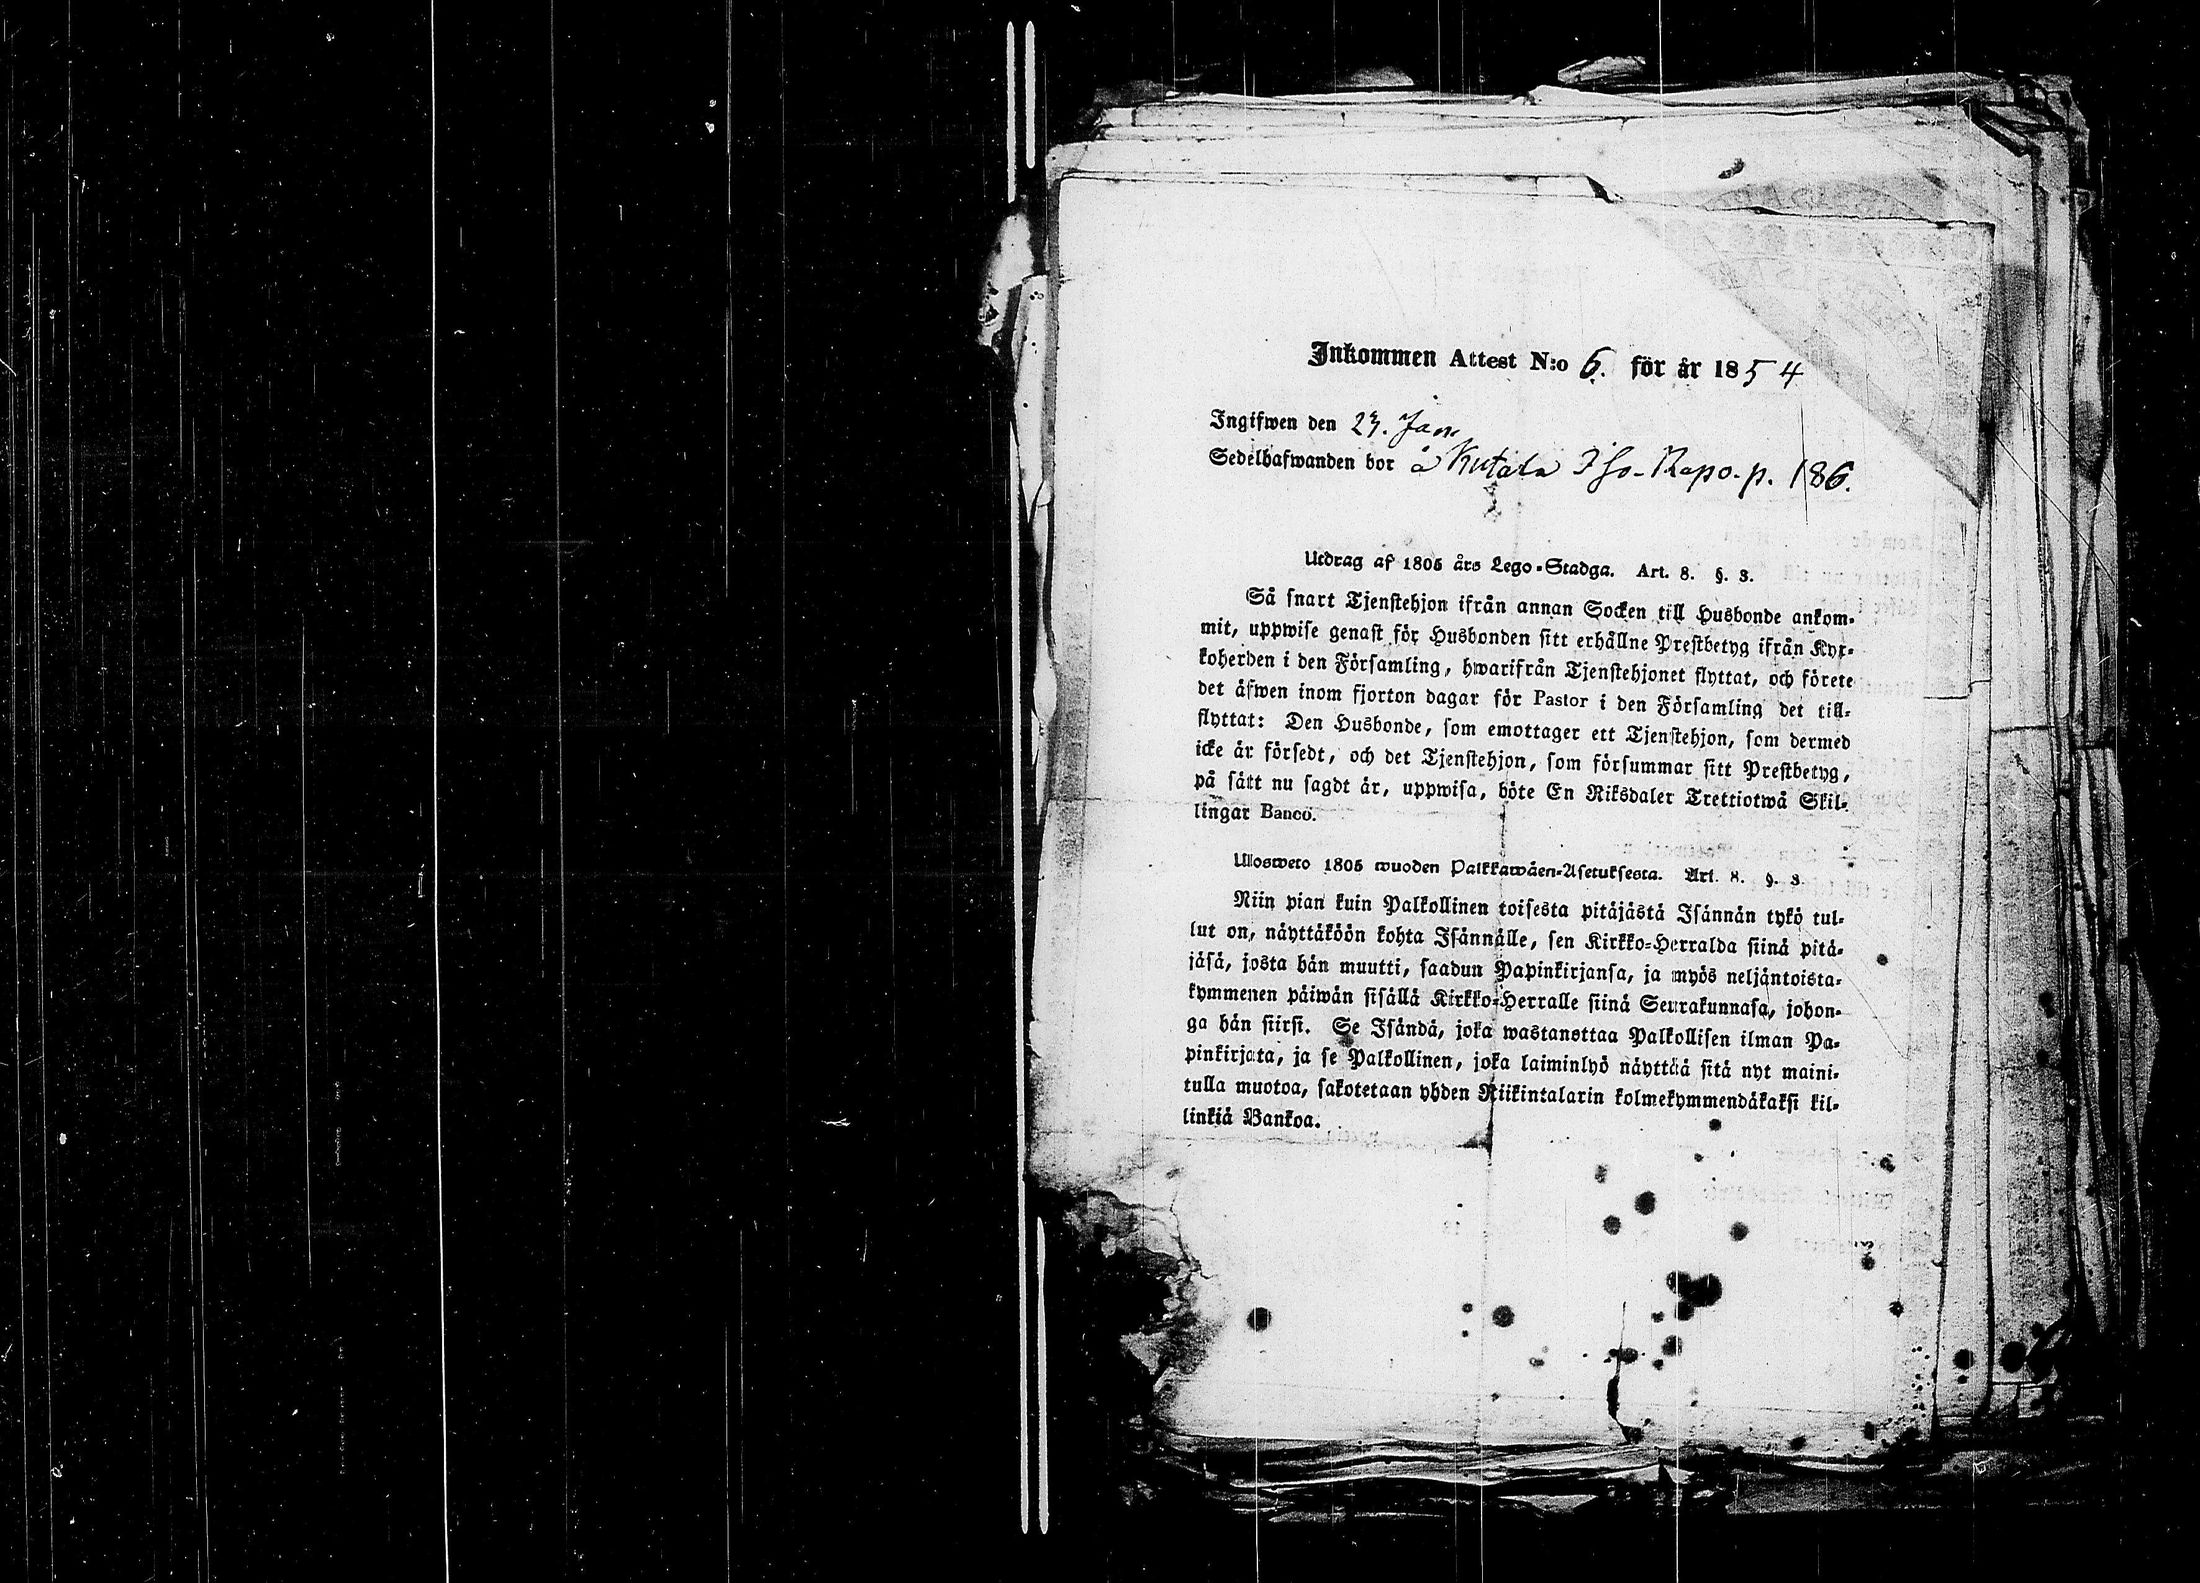 Inkommen Attest N:o 6. för år 1854
Ingifwen den 23. Jan.
Sedelhafwanden bor å Kutala Iso-Repo. p. 186.
Utdrag af 1805 års Lego-Stadga. Art. 8. §. 3.
Så snart Tjenstehjon ifrån annan Socken till Husbonde ankom-
mit, uppwise genast för Husbonden sitt erhållne Prestbetyg ifrån Kyr-
koherden i den Församling, hwarifrån Tjenstehjonet flyttat, och förete
det äfwen inom fjorton dagar för Pastor i den Församling det till-
flyttat: Den Husbonde, som emottager ett Tjenstehjon, som dermed
icke är försedt, och det Tjenstehjon, som försummar sitt Prestbetyg,
på sätt nu sagdt är, uppwisa, böte En Riksdaler Trettiotwå Skil-
lingar Banco.
Ulosweto 1805 wuoden Palkkawäen-Asetuksesta. Art. 8. §. 3.
Niin pian kuin Palkollinen toisesta pitäjästä Isännän tykö tul-
lut on, näyttäköön kohta Isännälle, sen Kirkko-Herralda siinä pitä-
jäsä, josta hän muutti, saadun Papinkirjansa, ja myös neljäntoista-
kymmenen päiwän sisällä Kirkko-Herralle siinä Seurakunnasa, johon-
ga hän siirsi. Se Isändä, joka wastanottaa Palkollisen ilman Pa-
pinkirjata, ja se Palkollinen, joka laiminlyö näyttää sitä nyt maini-
tulla muotoa, sakotetaan yhden Riikintalarin kolmekymmendäkaksi kil-
linkiä Bankoa.